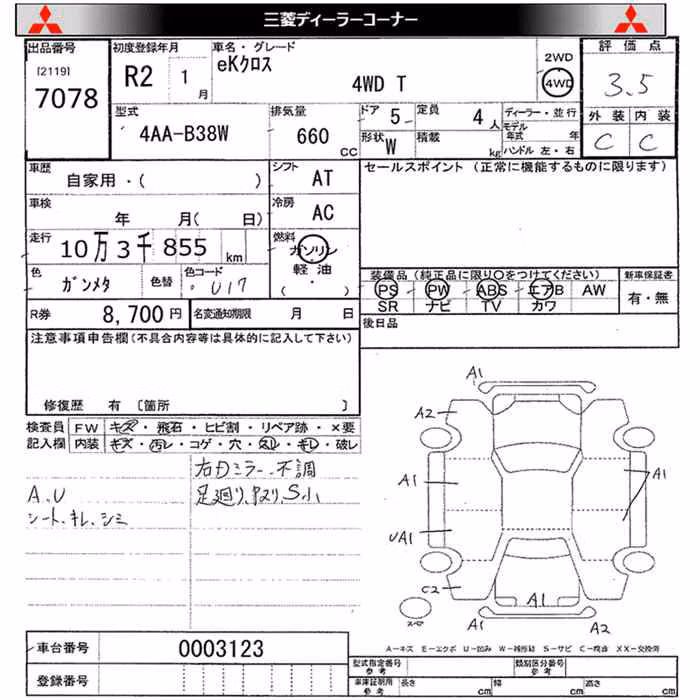 三菱ディーラーコーナー
出品番号
[2119]
7078
初度登録年月
R2 1月
車名・グレード
eKクロス
4WD T
2WD
4WD
評価点
3.5
外装 内装
C C
型式
4AA-B38W
排気量
660 CC
ドア 5
定員 4人
ディーラー・並行
モデル年式 年
形状 W
積載 kg
ハンドル 左・右
車歴
自家用・( )
シフト
AT
セールスポイント (正常に機能するものに限ります)
車検
年 月( 日)
冷房
AC
走行
10万3千855 km
燃料
ガソリン
軽油
( )
色
ガンメタ
色替
色コード
U17
装備品 (純正品に限り○をつけてください)
PS PW ABS エアB AW
SR ナビ TV カワ
新車保証書
有・無
R券 8,700円
名変通知期限 月 日
後日品
注意事項申告欄(不具合内容等は具体的に記入して下さい)
修復歴 有 〔箇所 〕
検査員記入欄
FW キズ・飛石・ヒビ割・リペア跡・×要
内装 キズ・汚レ・コゲ・穴・スレ・キレ・破レ
右Dミラー不調
A.U
シート.キレ.シミ
A1
A2
A1
A1
UA1
C2
A1
A1
A2
スペ
A=キズ E=エクボ U=凹み W=補修跡 S=サビ C=腐食 XX=交換済
車台番号 0003123
登録番号
型式指定番号 参考
類別区分番号 参考
車庫証明用 参考 長さ cm 幅 cm 高さ cm